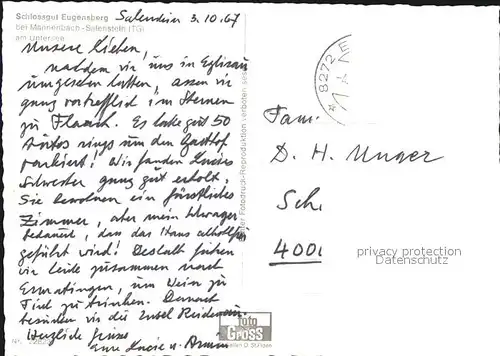 Schlossgut Eugensberg Salenstein 3.10.67
bei Mannenbach-Salenstein (TG)
am Untersee
Unsere Lieben,
nachdem wir uns in Eglisau
umgesehen hatten, assen wir
ganz vortrefflich im Sternen
zu Flaach. Es hatte gut 50
Autos rings um den Gasthof
parkiert! Wir fanden
Schwester ganz gut erholt.
Sie bewohnen ein fürstliches
Zimmer, aber mein Schwager
bedauert, dass das Haus alkoholfrei
geführt wird! Deshalb fuhren
wir heute zusammen nach
Ermatingen, um Wein zu
Tisch zu trinken. Darnach
besuchten wir die Insel Reichenau.
Herzliche Grüsse
Eure u. Armin
8272 E
Fam.
D. H. Unger
Sch
4000
privacy protection
Datenschutz
Fotodruck-Reproduktion verboten
foto
GROSS
St. Gallen